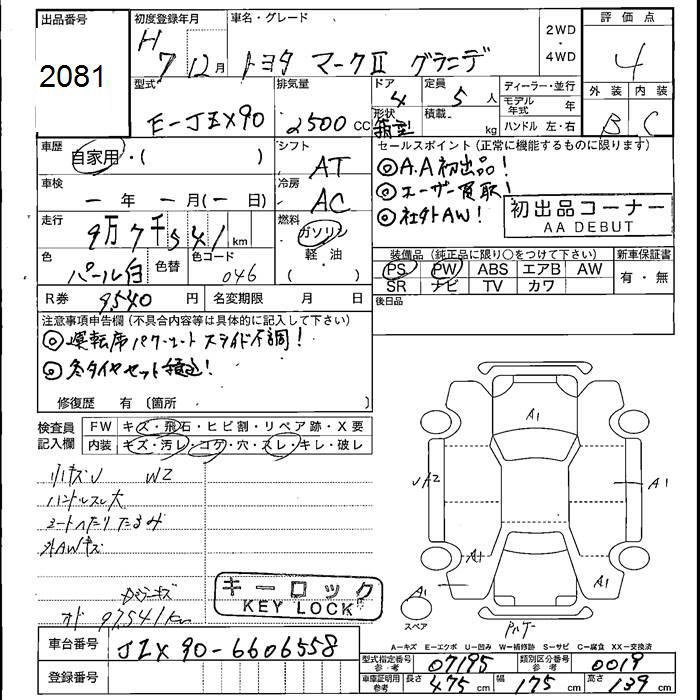 出品番号 初度登録年月 車名・グレード 評価点
2081 H 7 12月 トヨタ マークII グランデ 2WD・4WD 4
型式 排気量 ドア 定員 ディーラー・並行 外装 内装
E-JZX90 2500cc 4 5人 モデル年式 年 B C
形状 積載 kg ハンドル 左・右
車歴 自家用・( ) シフト AT セールスポイント(正常に機能するものに限ります)
◎A.A初出品!
車検 ー年ー月(ー日) 冷房 AC ◎ユーザー買取!
◎社外AW! 初出品コーナー
AA DEBUT
走行 9万7千541km 燃料 ガソリン
軽・油
( )
色 パール白 色替 色コード 046
装備品(純正品に限り○をつけて下さい) 新車保証書
PS PW ABS エアB AW 有・無
SR ナビ TV カワ
R券 9540円 名変期限 月 日 後日品
注意事項申告欄(不具合内容等は具体的に記入して下さい)
◎運転席パワーシートスライド不調!
◎冬タイヤセット積込!
修復歴 有 〔箇所 〕
検査員記入欄 FW キズ・飛石・ヒビ割・リペア跡・X要
内装 キズ・汚レ・コゲ・穴・スレ・キレ・破レ
小キズU W2
ハンドルスレ大
シートヘたりたるみ
外AWキズ
オド 97541km
キーロック
KEY LOCK
A1
A1
A1
A1
A1
スペア
A-キズ E-エクボ U-凹み W-補修跡 S-サビ C-腐食 XX-交換済
車台番号 JZX90-6606558
型式指定番号 参考 07195 類別区分番号 参考 0019
登録番号 車庫証明用 参考 長さ 475cm 幅 175cm 高さ 139cm